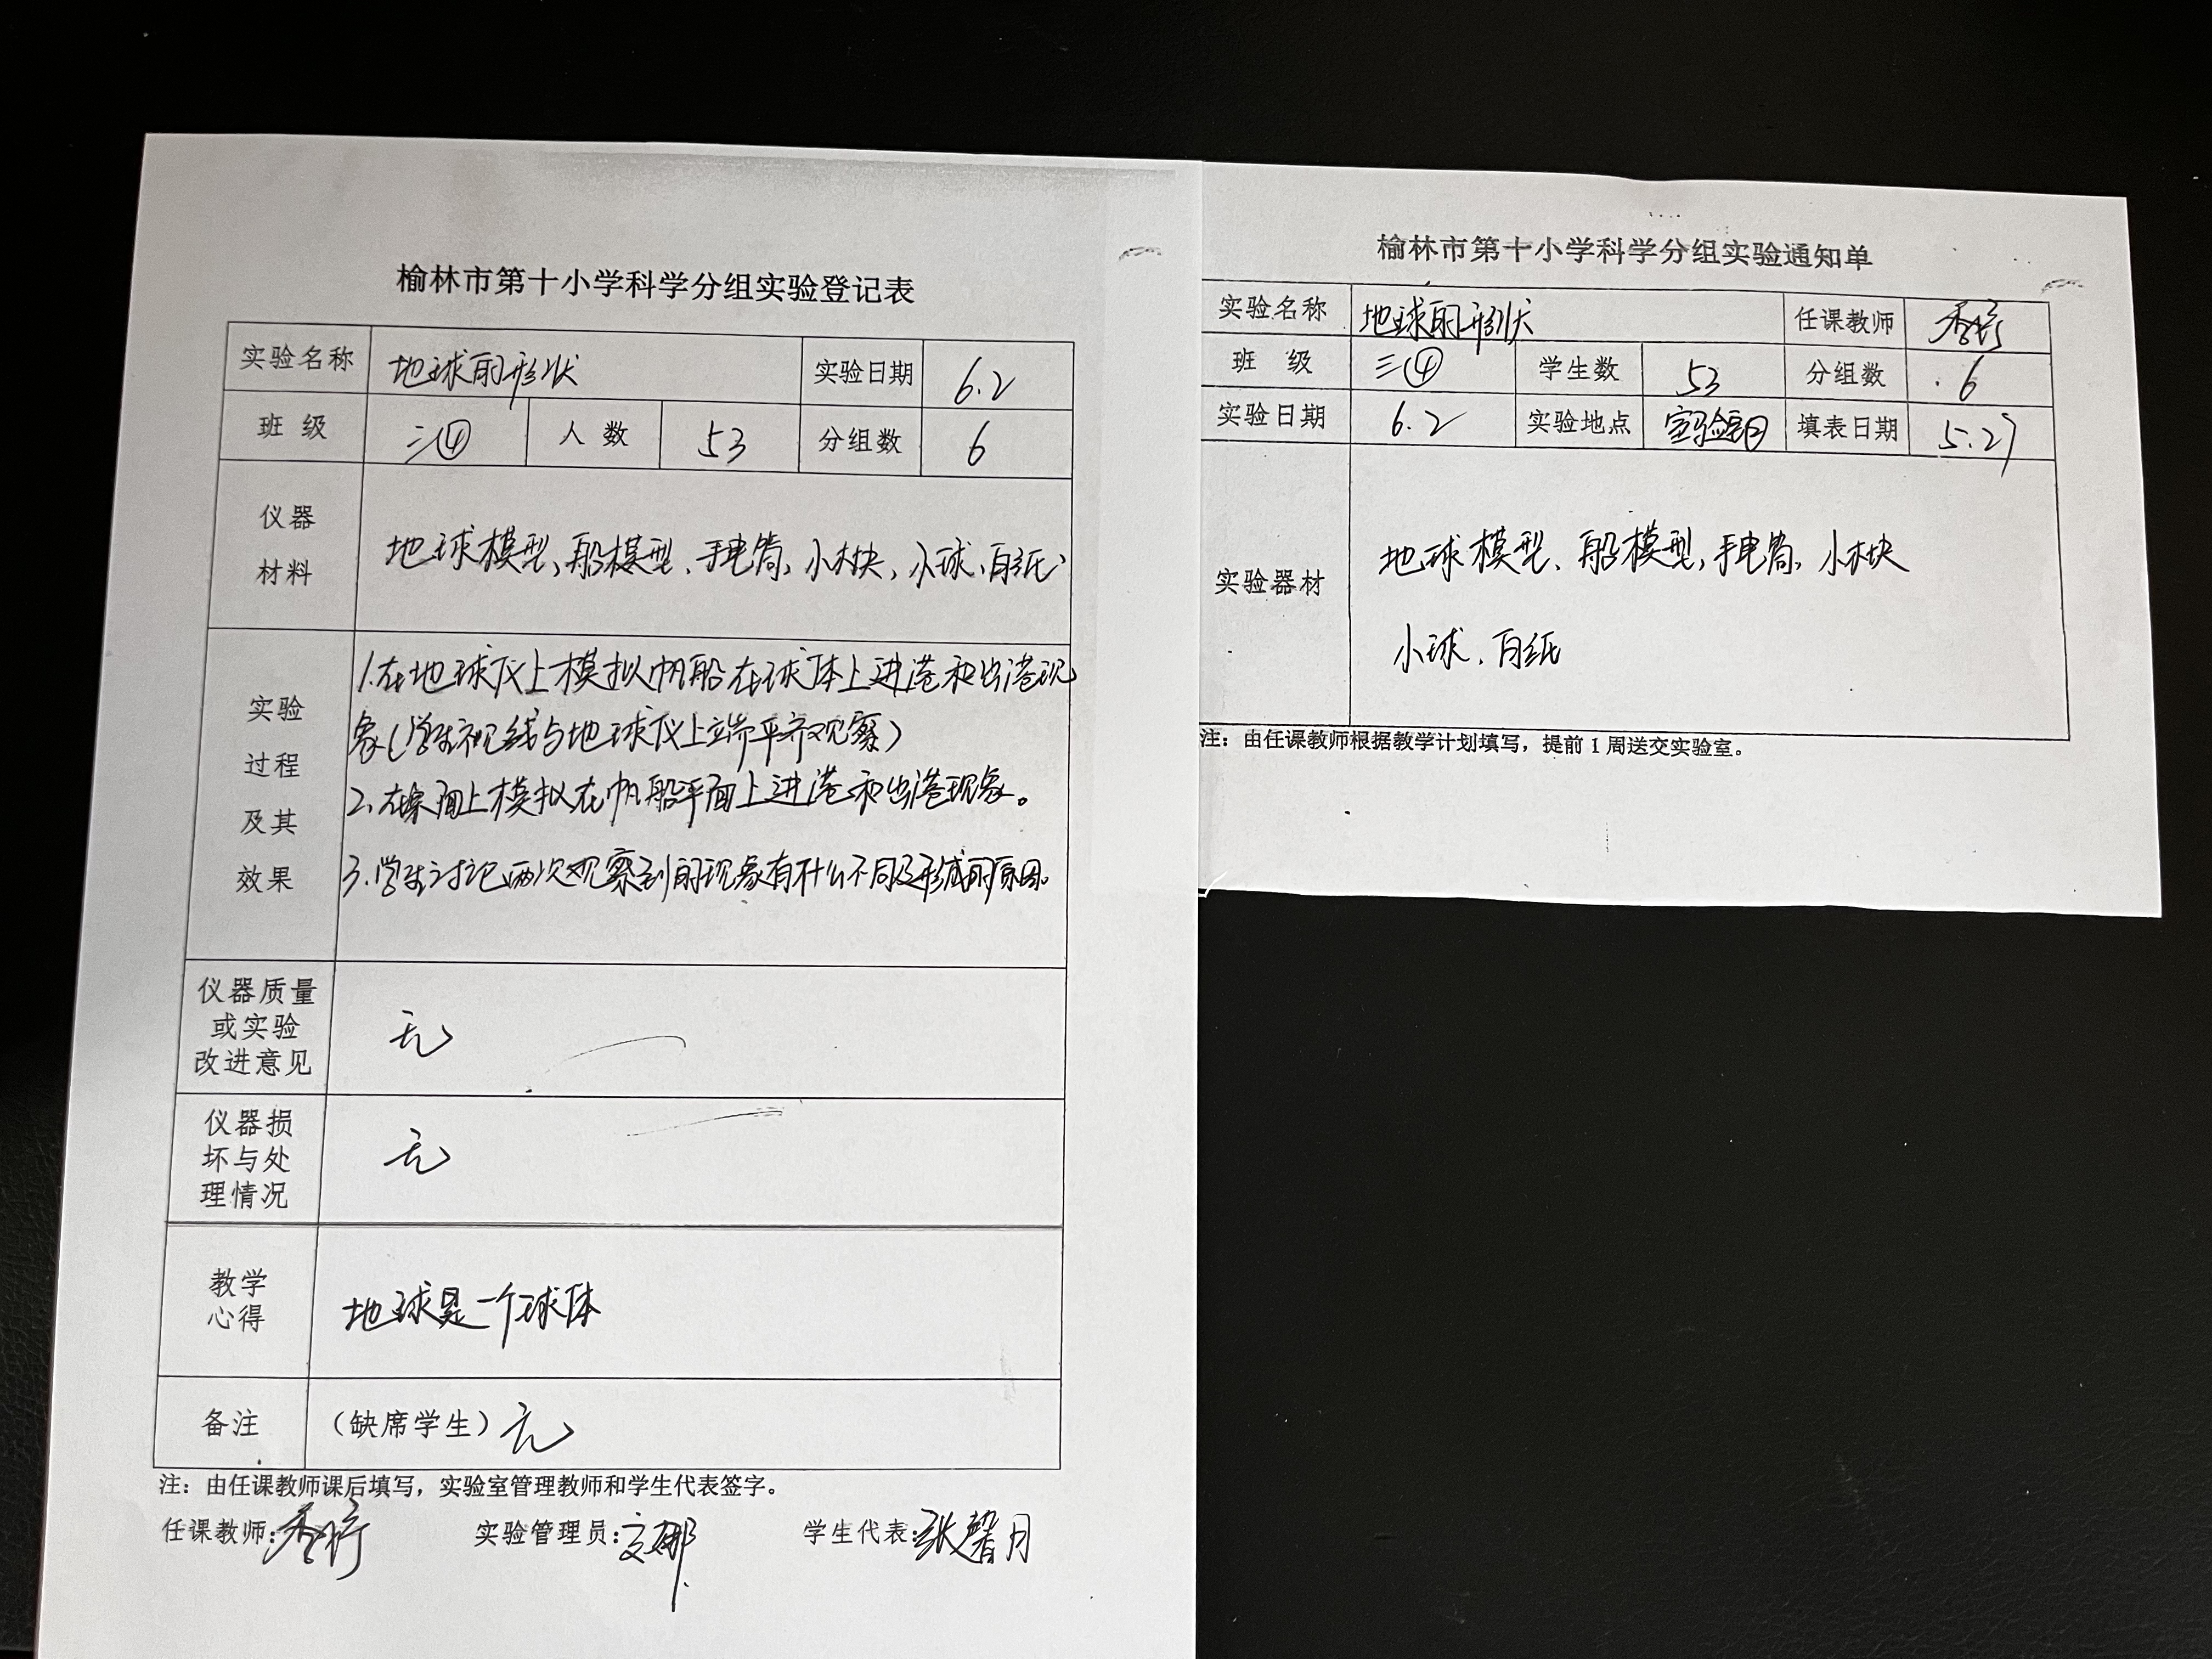 榆林市第十小学科学分组实验登记表
实验名称 地球的形状 实验日期 6.2
班 级 三④ 人 数 53 分组数 6
仪器
材料
地球模型、船模型、手电筒、小木块、小球、白纸
实验
过程
及其
效果
1.在地球仪上模拟帆船在球体上进港和出港现
象(学生视线与地球仪上端平齐观察)
2.在桌面上模拟在帆船平面上进港和出港现象。
3.学生讨论两次观察到的现象有什么不同及形成的原因。
仪器质量
或实验
改进意见
无
仪器损
坏与处
理情况
无
教学
心得
地球是一个球体
备注 (缺席学生) 无
注：由任课教师课后填写，实验室管理教师和学生代表签字。
任课教师: 实验管理员: 学生代表:张馨月
榆林市第十小学科学分组实验通知单
实验名称 地球的形状 任课教师
班 级 三④ 学生数 53 分组数 6
实验日期 6.2 实验地点 填表日期 5.27
实验器材
地球模型、船模型,手电筒,小木块
小球、白纸
注：由任课教师根据教学计划填写，提前1周送交实验室。